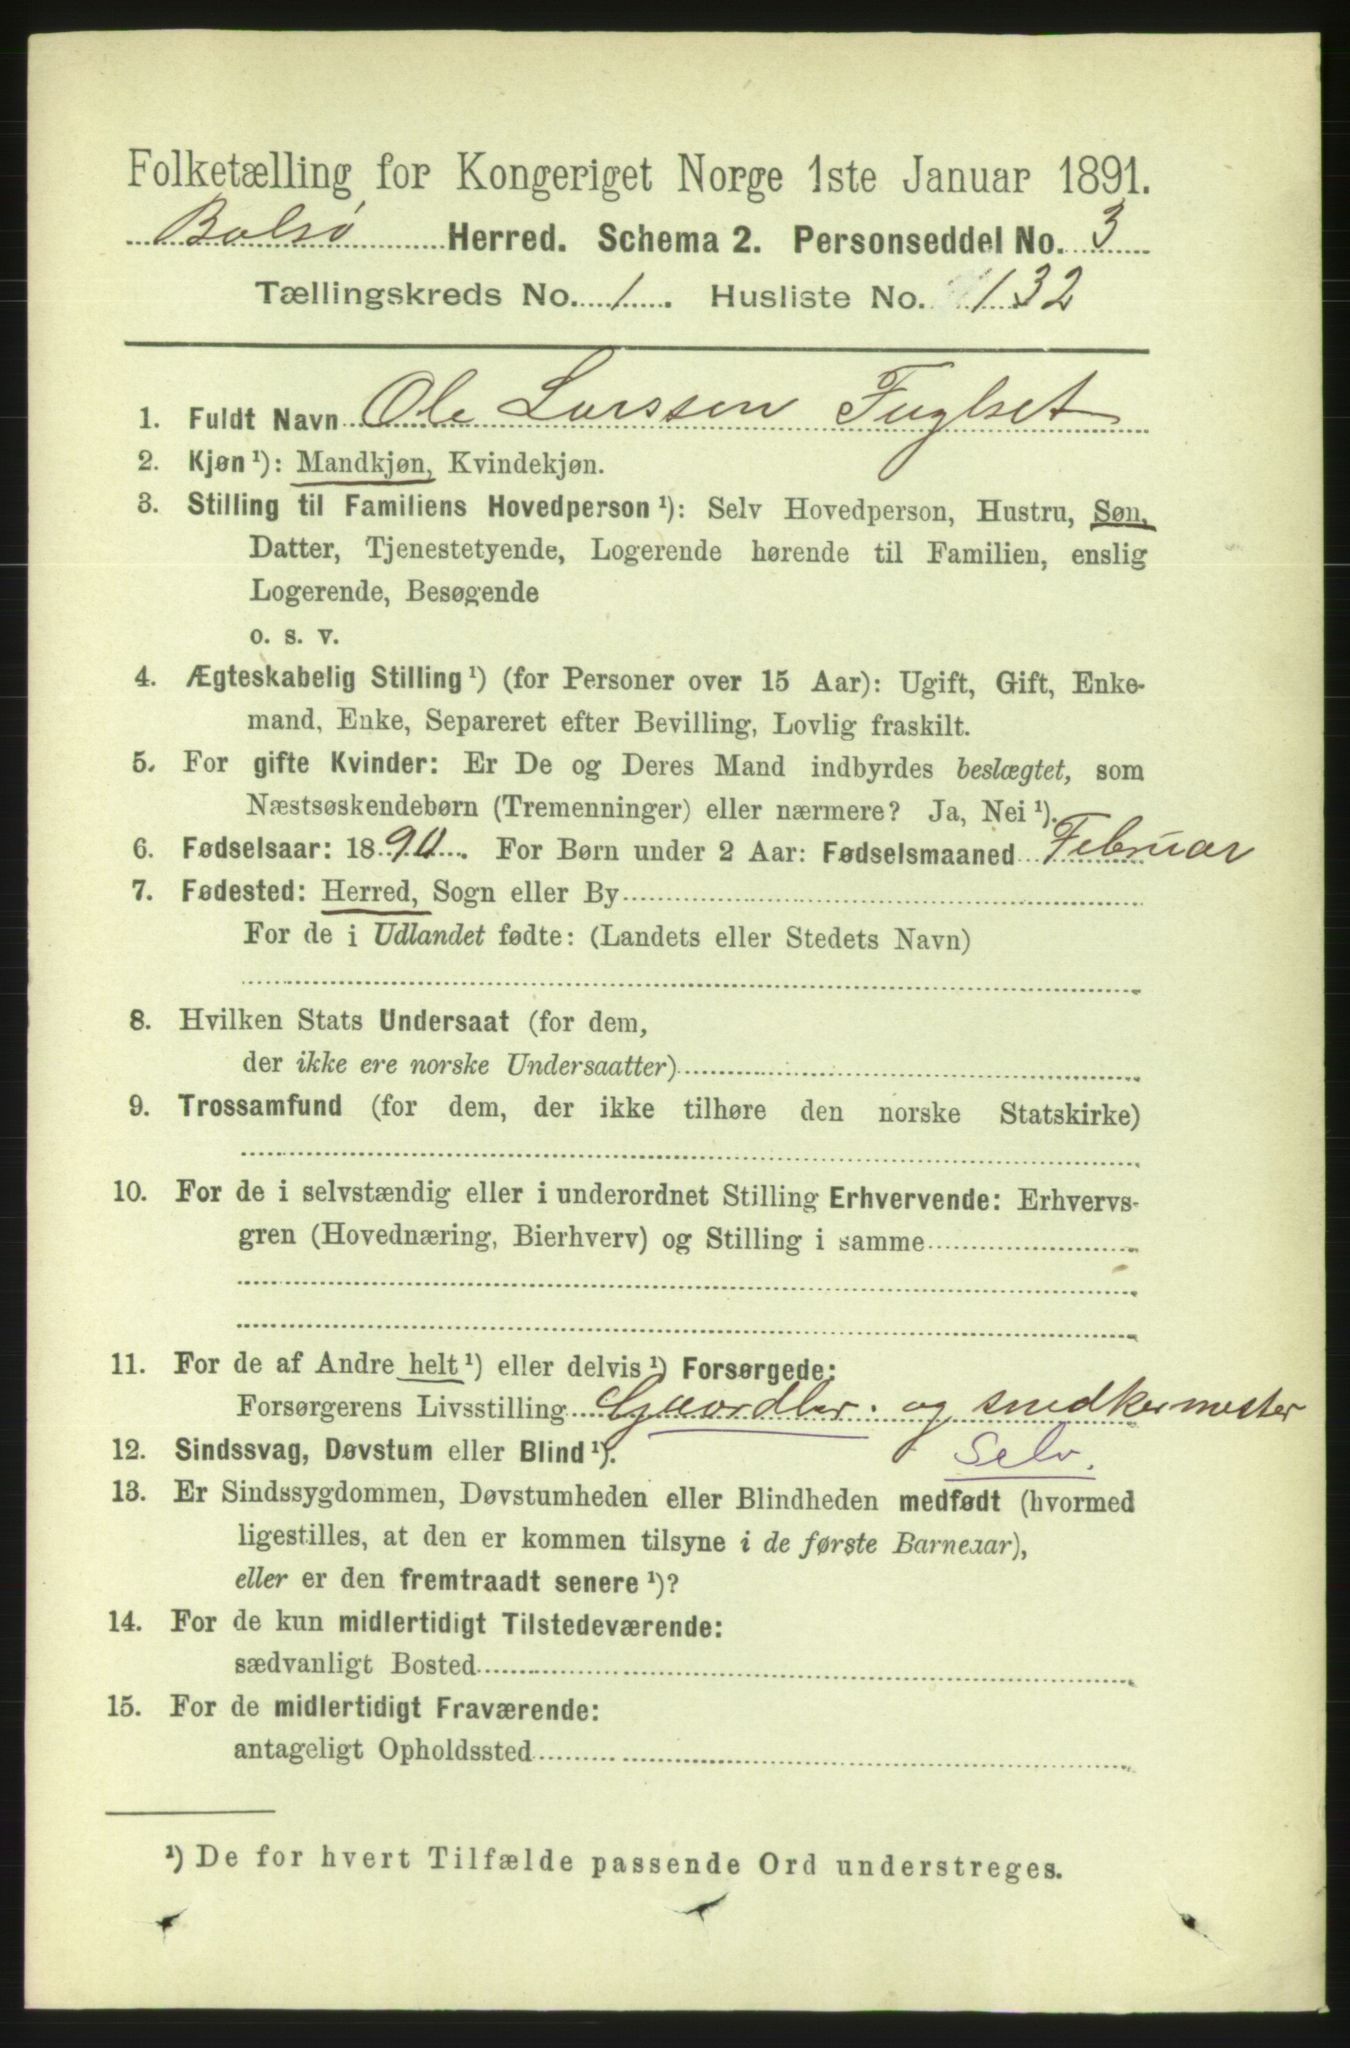 Folketælling for Kongeriget Norge 1ste Januar 1891.
Bolsø Herred. Schema 2. Personseddel No. 3
Tællingskreds No. 1. Husliste No. 132
1. Fuldt Navn Ole Larssen Fuglset
2. Kjøn ¹): Mandkjøn, Kvindekjøn.
3. Stilling til Familiens Hovedperson ¹): Selv Hovedperson, Hustru, Søn,
Datter, Tjenestetyende, Logerende hørende til Familien, enslig
Logerende, Besøgende
o. s. v.
4. Ægteskabelig Stilling ¹) (for Personer over 15 Aar): Ugift, Gift, Enke-
mand, Enke, Separeret efter Bevilling, Lovlig fraskilt.
5. For gifte Kvinder: Er De og Deres Mand indbyrdes beslægtet, som
Næstsøskendebørn (Tremenninger) eller nærmere? Ja, Nei ¹).
6. Fødselsaar: 1890. For Børn under 2 Aar: Fødselsmaaned Februar
7. Fødested: Herred, Sogn eller By
For de i Udlandet fødte: (Landets eller Stedets Navn)
8. Hvilken Stats Undersaat (for dem,
der ikke ere norske Undersaatter)
9. Trossamfund (for dem, der ikke tilhøre den norske Statskirke)
10. For de i selvstændig eller i underordnet Stilling Erhvervende: Erhvervs-
gren (Hovednæring, Bierhverv) og Stilling i samme
11. For de af Andre helt ¹) eller delvis ¹) Forsørgede:
Forsørgerens Livsstilling Gaardbr. og snedkermester
12. Sindssvag, Døvstum eller Blind ¹). Selv.
13. Er Sindssygdommen, Døvstumheden eller Blindheden medfødt (hvormed
ligestilles, at den er kommen tilsyne i de første Barneaar),
eller er den fremtraadt senere ¹)?
14. For de kun midlertidigt Tilstedeværende:
sædvanligt Bosted
15. For de midlertidigt Fraværende:
antageligt Opholdssted
¹) De for hvert Tilfælde passende Ord understreges.